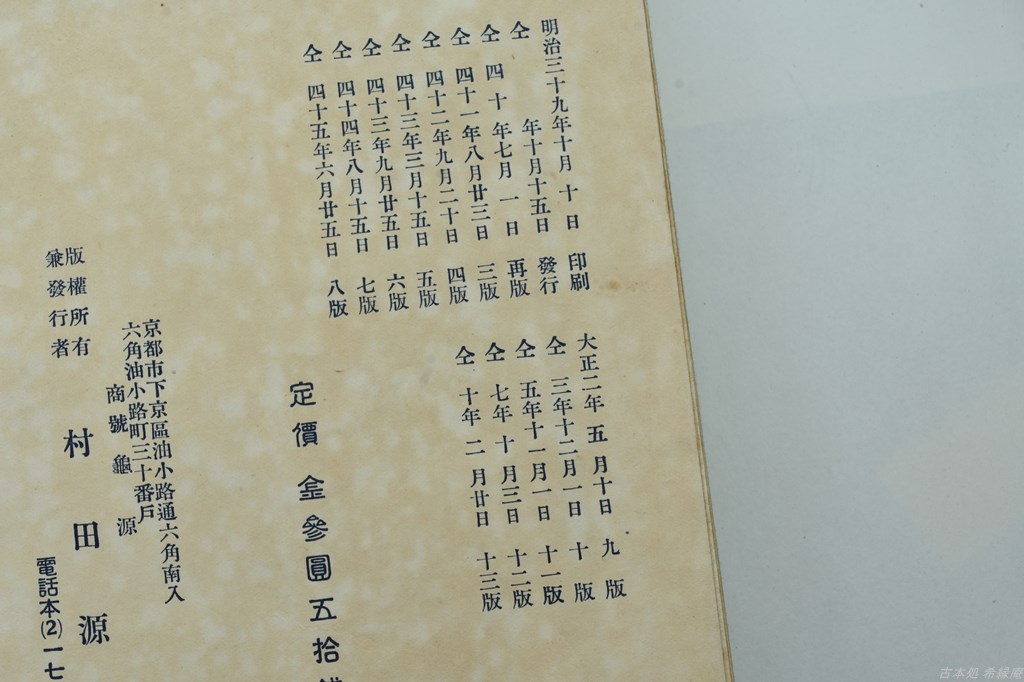 明治三十九年十月十日印刷
仝年十月十五日發行
仝四十年七月一日再版
仝四十一年八月廿三日三版
仝四十二年九月二十日四版
仝四十三年三月十五日五版
仝四十三年九月廿五日六版
仝四十四年八月十五日七版
仝四十五年六月廿五日八版
大正二年五月十日九版
仝三年十二月一日十版
仝五年十一月一日十一版
仝七年十月三日十二版
仝十年二月廿日十三版
定價金參圓五拾
京都市下京區油小路通六角南入
六角油小路町三十番戶
商號龜源
版權所有
兼發行者
村田源
電話本(2)一七
古本処 希縁庵